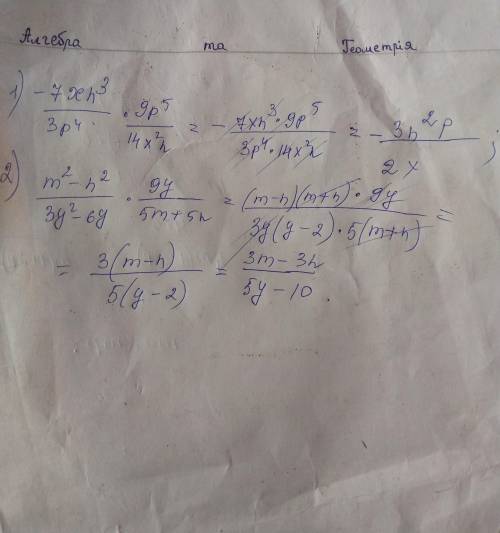 Алгебра та Геометрія
1) -7xn³/3p⁴ · 9p⁵/14x²n = - 7xn³·9p⁵/3p⁴·14x²n = - 3n²p/2x ;
2) m²-n²/3y²-6y · 9y/5m+5n = (m-n)(m+n)·9y/3y(y-2)·5(m+n) =
= 3(m-n)/5(y-2) = 3m-3n/5y-10 .